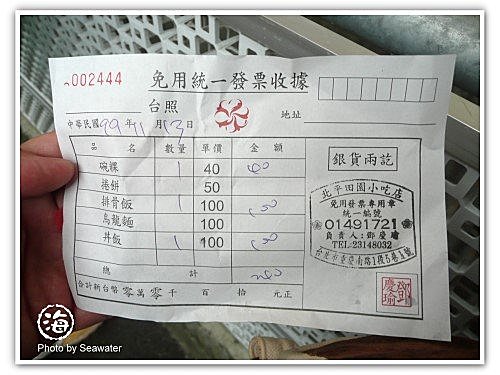 002444
免用統一發票收據
台照
地址
中華民國 99 年 11 月 13 日
品名 數量 單價 金額
碗粿 1 40 40
捲餅 50
排骨飯 1 100 100
烏龍麵 100
丼飯 1 100 100
總計 240
合計新台幣 零 萬 零 仟 百 拾 元正
銀貨兩訖
北平田園小吃店
免用發票專用章
統一編號
01491721
負責人:鄧慶瑜
TEL:23148032
台北市重慶南路1段5巷1號
鄧慶瑜
海
Photo by Seawater